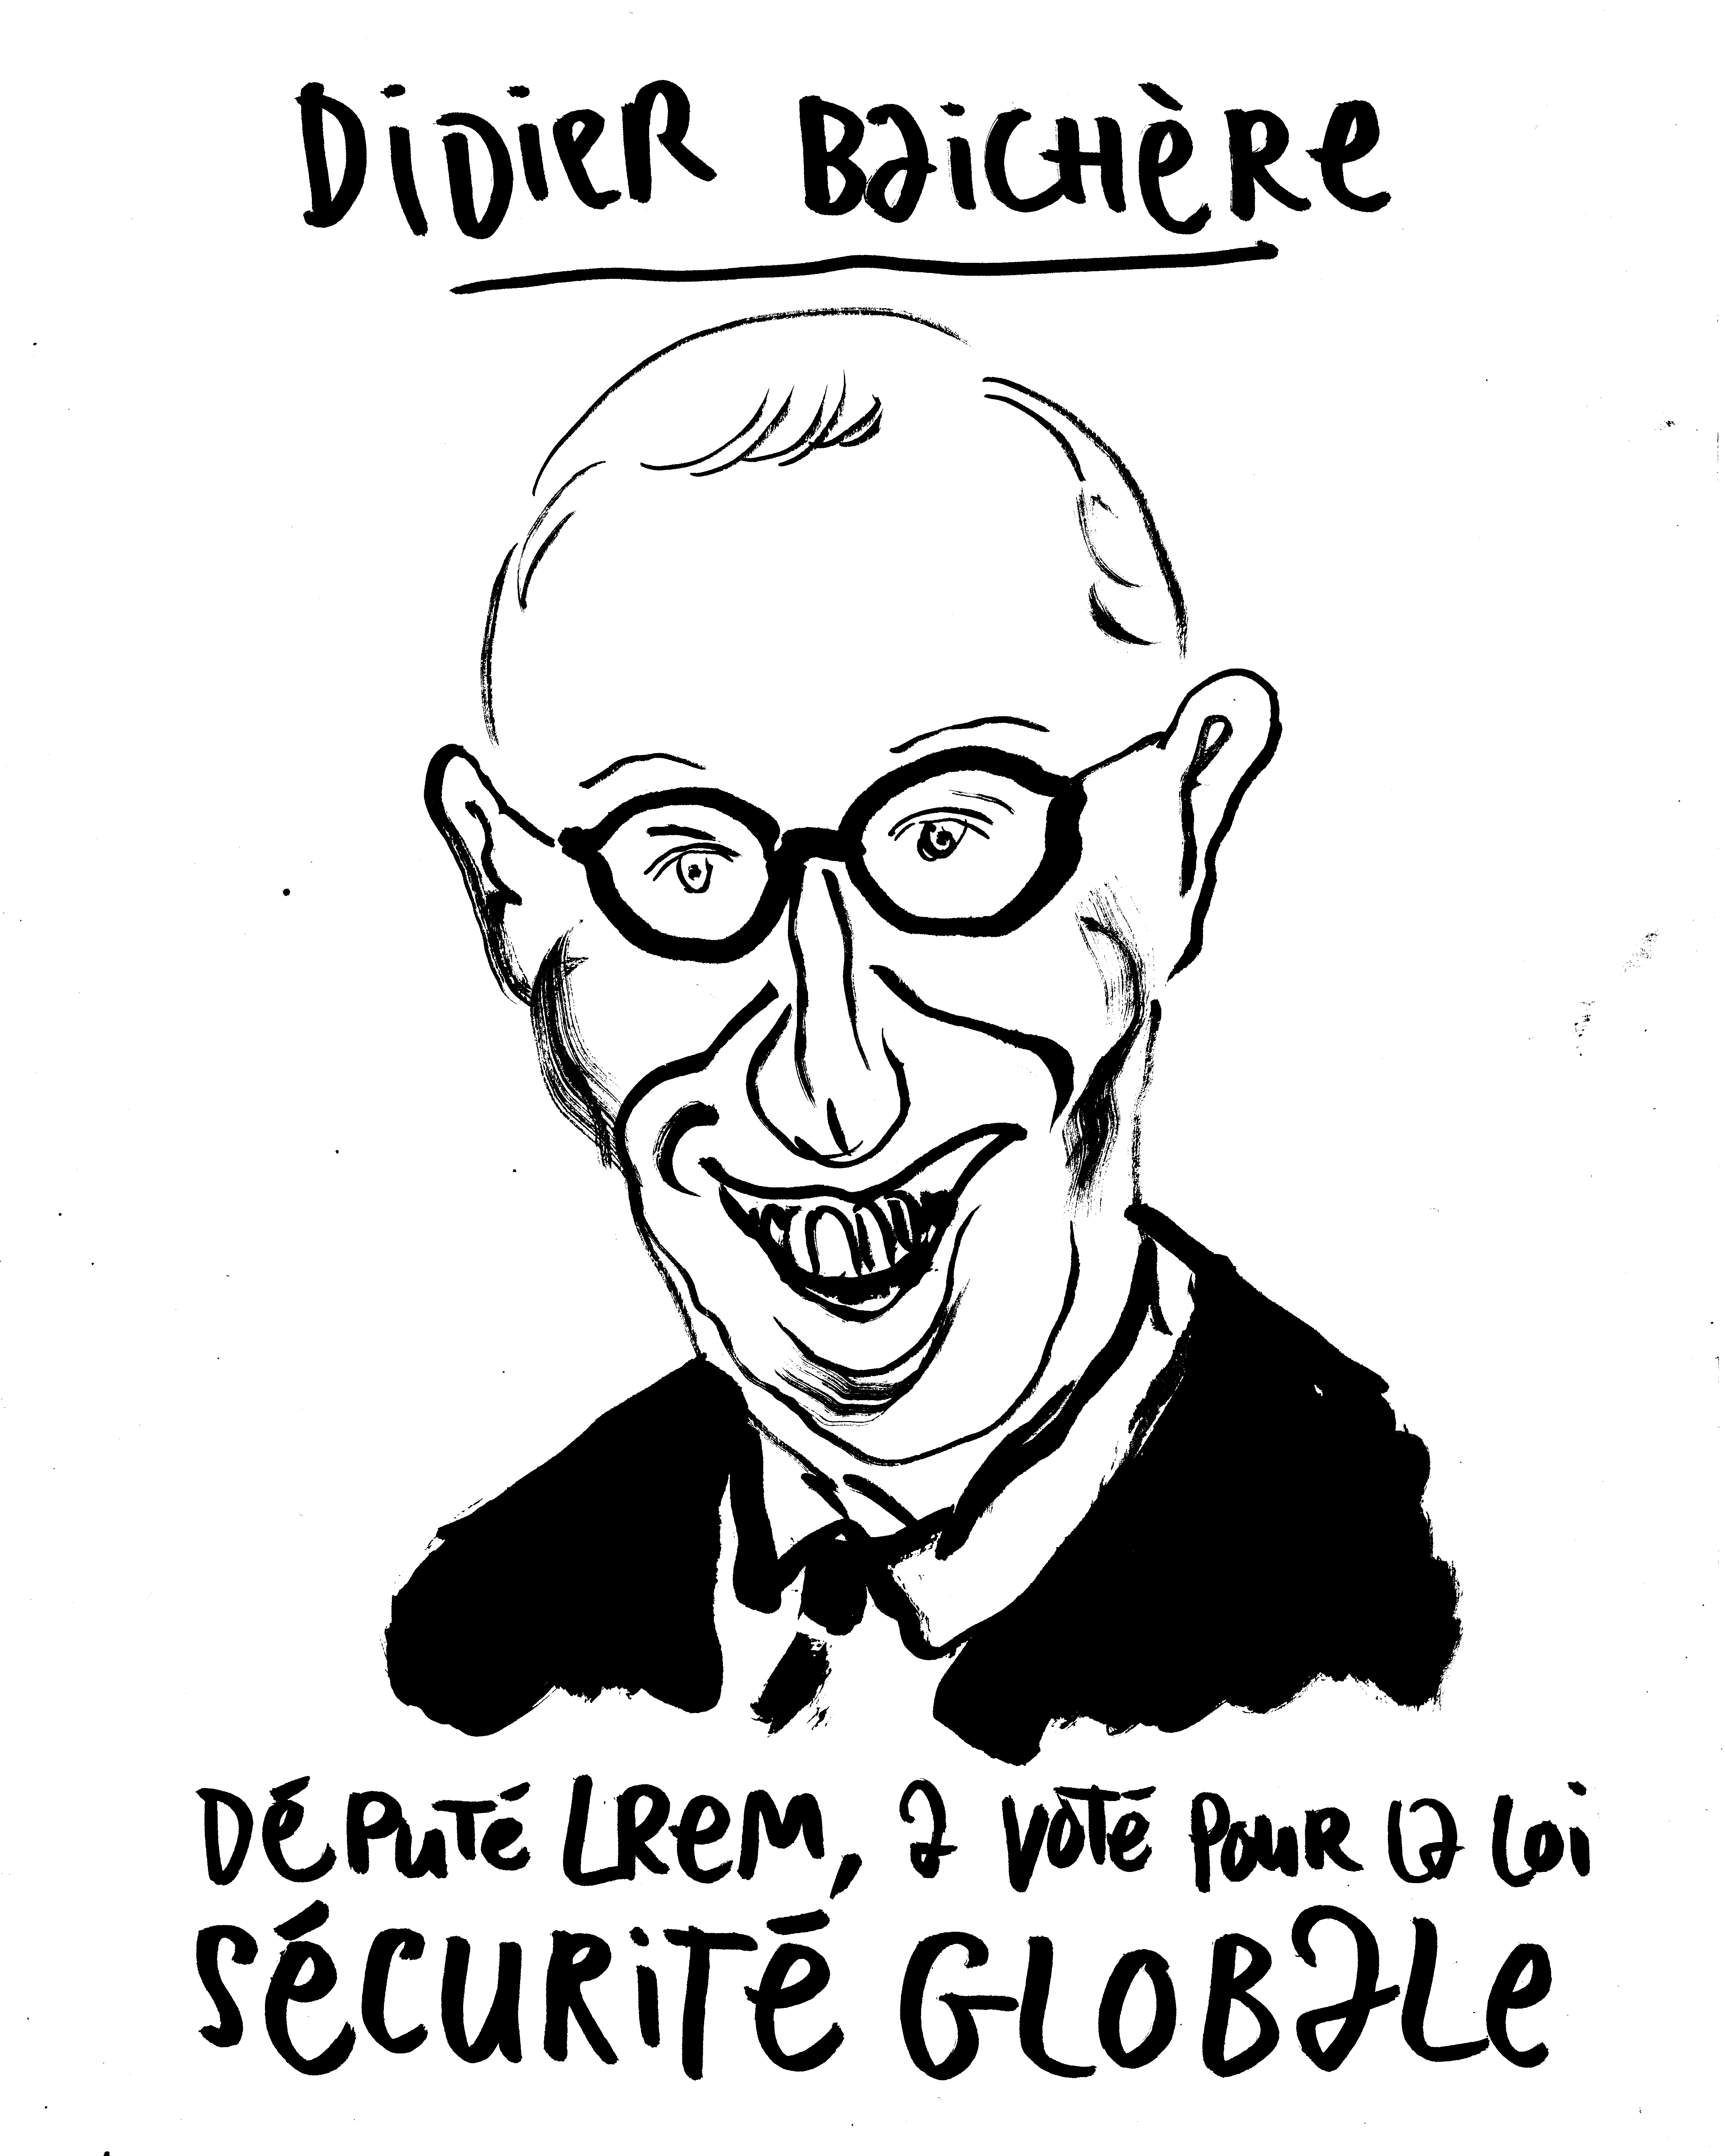 Didier Baichère
Député LREM, a voté pour la loi
Sécurité Globale